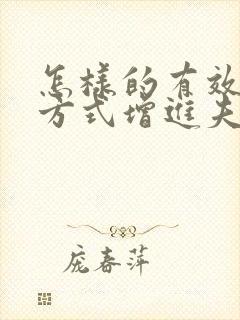 怎樣的有效
方式增進夫
庞春萍